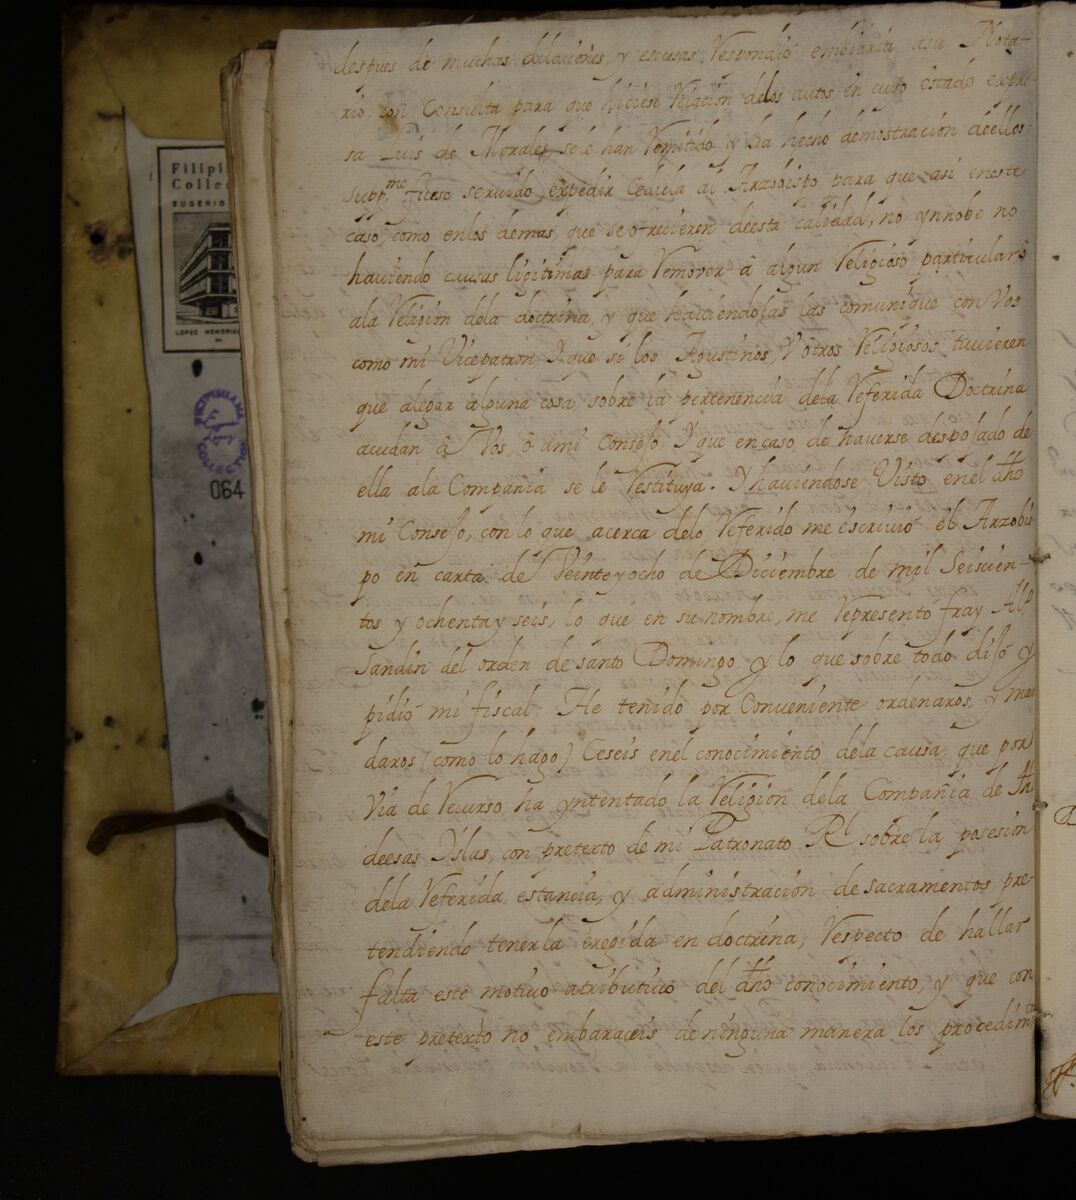 despues de muchas dilaciones, y escusas Respondió embiaria asu Nota-
rio, con Consulta para que hiciese Relacion delos autos, en cuio estado expre-
sa Luis de Morales, sele han Remitido y ha hecho demostracion deellos,
Suppme. fuese servido, expedir Cedula al Arzobispo para que asi eneste
caso, como enlos demas, que se ofrecieren deesta calidad, no ynnobe no
haviendo causas ligitimas para Remover à algun Religioso particular ò
ala Religion dela doctrina, y que haciendolas las comunique con Vos
como mi Vicepatron, Y que si los Agustinos, V otros Religiosos tuvieren
que alegar alguna cosa sobre la pertenencia dela Referida Doctrina
acudan â Vos, ò ami Consejo Y que encaso de haverse despojado de
ella ala Compañia se le Restituya. Y haviendose Visto enel dho
mi Consejo, con lo que acerca delo Referido me escrivió el Arzobis-
po en carta de Veinteyocho de Diciembre de mil Seiscien-
tos y ochenta y seis, lo que en su nombre, me Represento fray Alo
Sandin del orden de santo Domingo y lo que sobre todo dijo y
pidió mi fiscal; He tenido por Conveniente ordenaros, y man
daros (como lo hago) Ceseis enel conocimiento dela causa que por
Via de Recurso, ha yntentado la Religion dela Compañia de Jhs
deesas Yslas, con pretexto de mi Patronato Rl sobre la posesion
dela Referida estancia, y administracion de sacramentos, pre-
tendiendo tenerla eregida en doctrina, Respecto de hallar
falta este motivo atributivo del dho conocimiento, y que con
este pretexto no embaraceis de ninguna manera los procedimtos
Filipi
Colec
EUGENIO
LOPEZ MEMORIAL
FILIPINIANA
COLLECTION
064